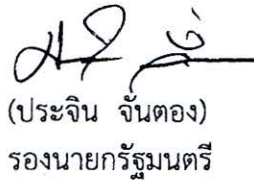 (ประจิน จั่นตอง)
รองนายกรัฐมนตรี